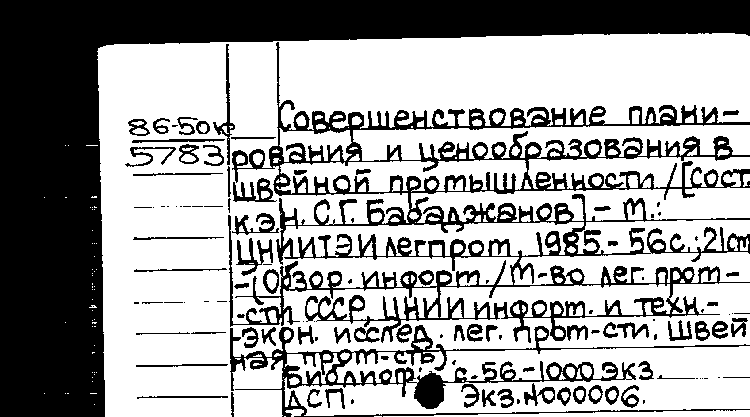 86-50кр
5783
Совершенствование плани-
рования и ценообразования в
швейной промышленности / [сост.
к.э.н. С.Г. Бабаджанов]. - М.:
ЦНИИТЭИлегпром, 1985. - 56с.; 21см
-(Обзор. информ. / М-во лег. пром-
-сти СССР, ЦНИИ информ. и техн.-
-экон. исслед. лег. пром-сти. Швей
ная пром-сть).
Библиогр.: с.56. - 1000 экз.
ДСП. Экз.N000006.